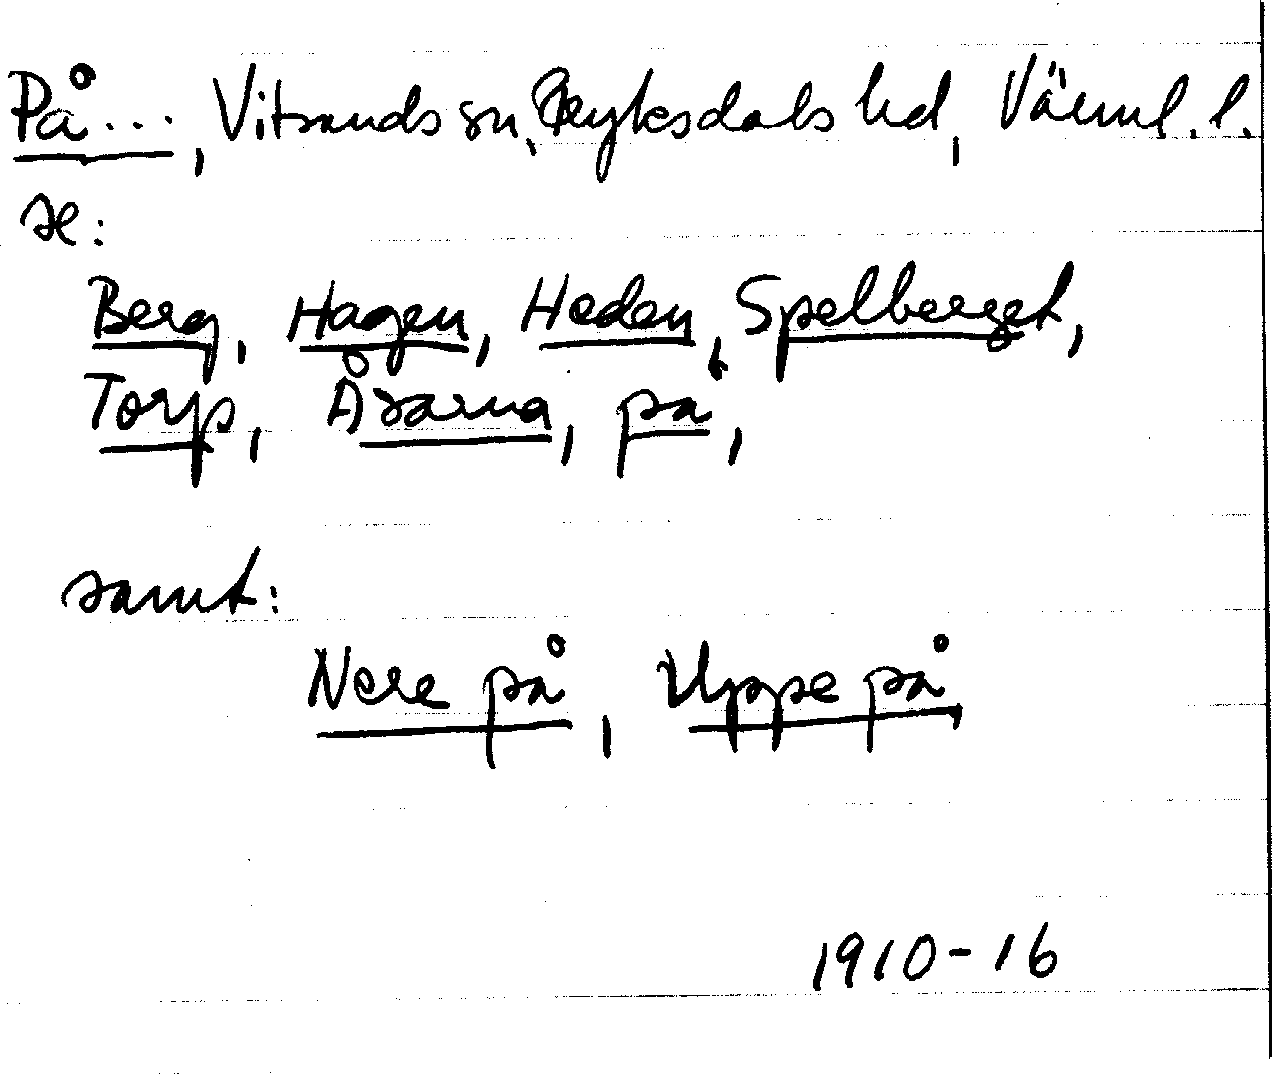 På..., Vitsands sn, Fryksdals hd, Värml. l.
se:
Berg, Hagen, Heden, Spelberget,
Torp, Åsarna, på,
samt:
Nere på, Uppe på
1910-16